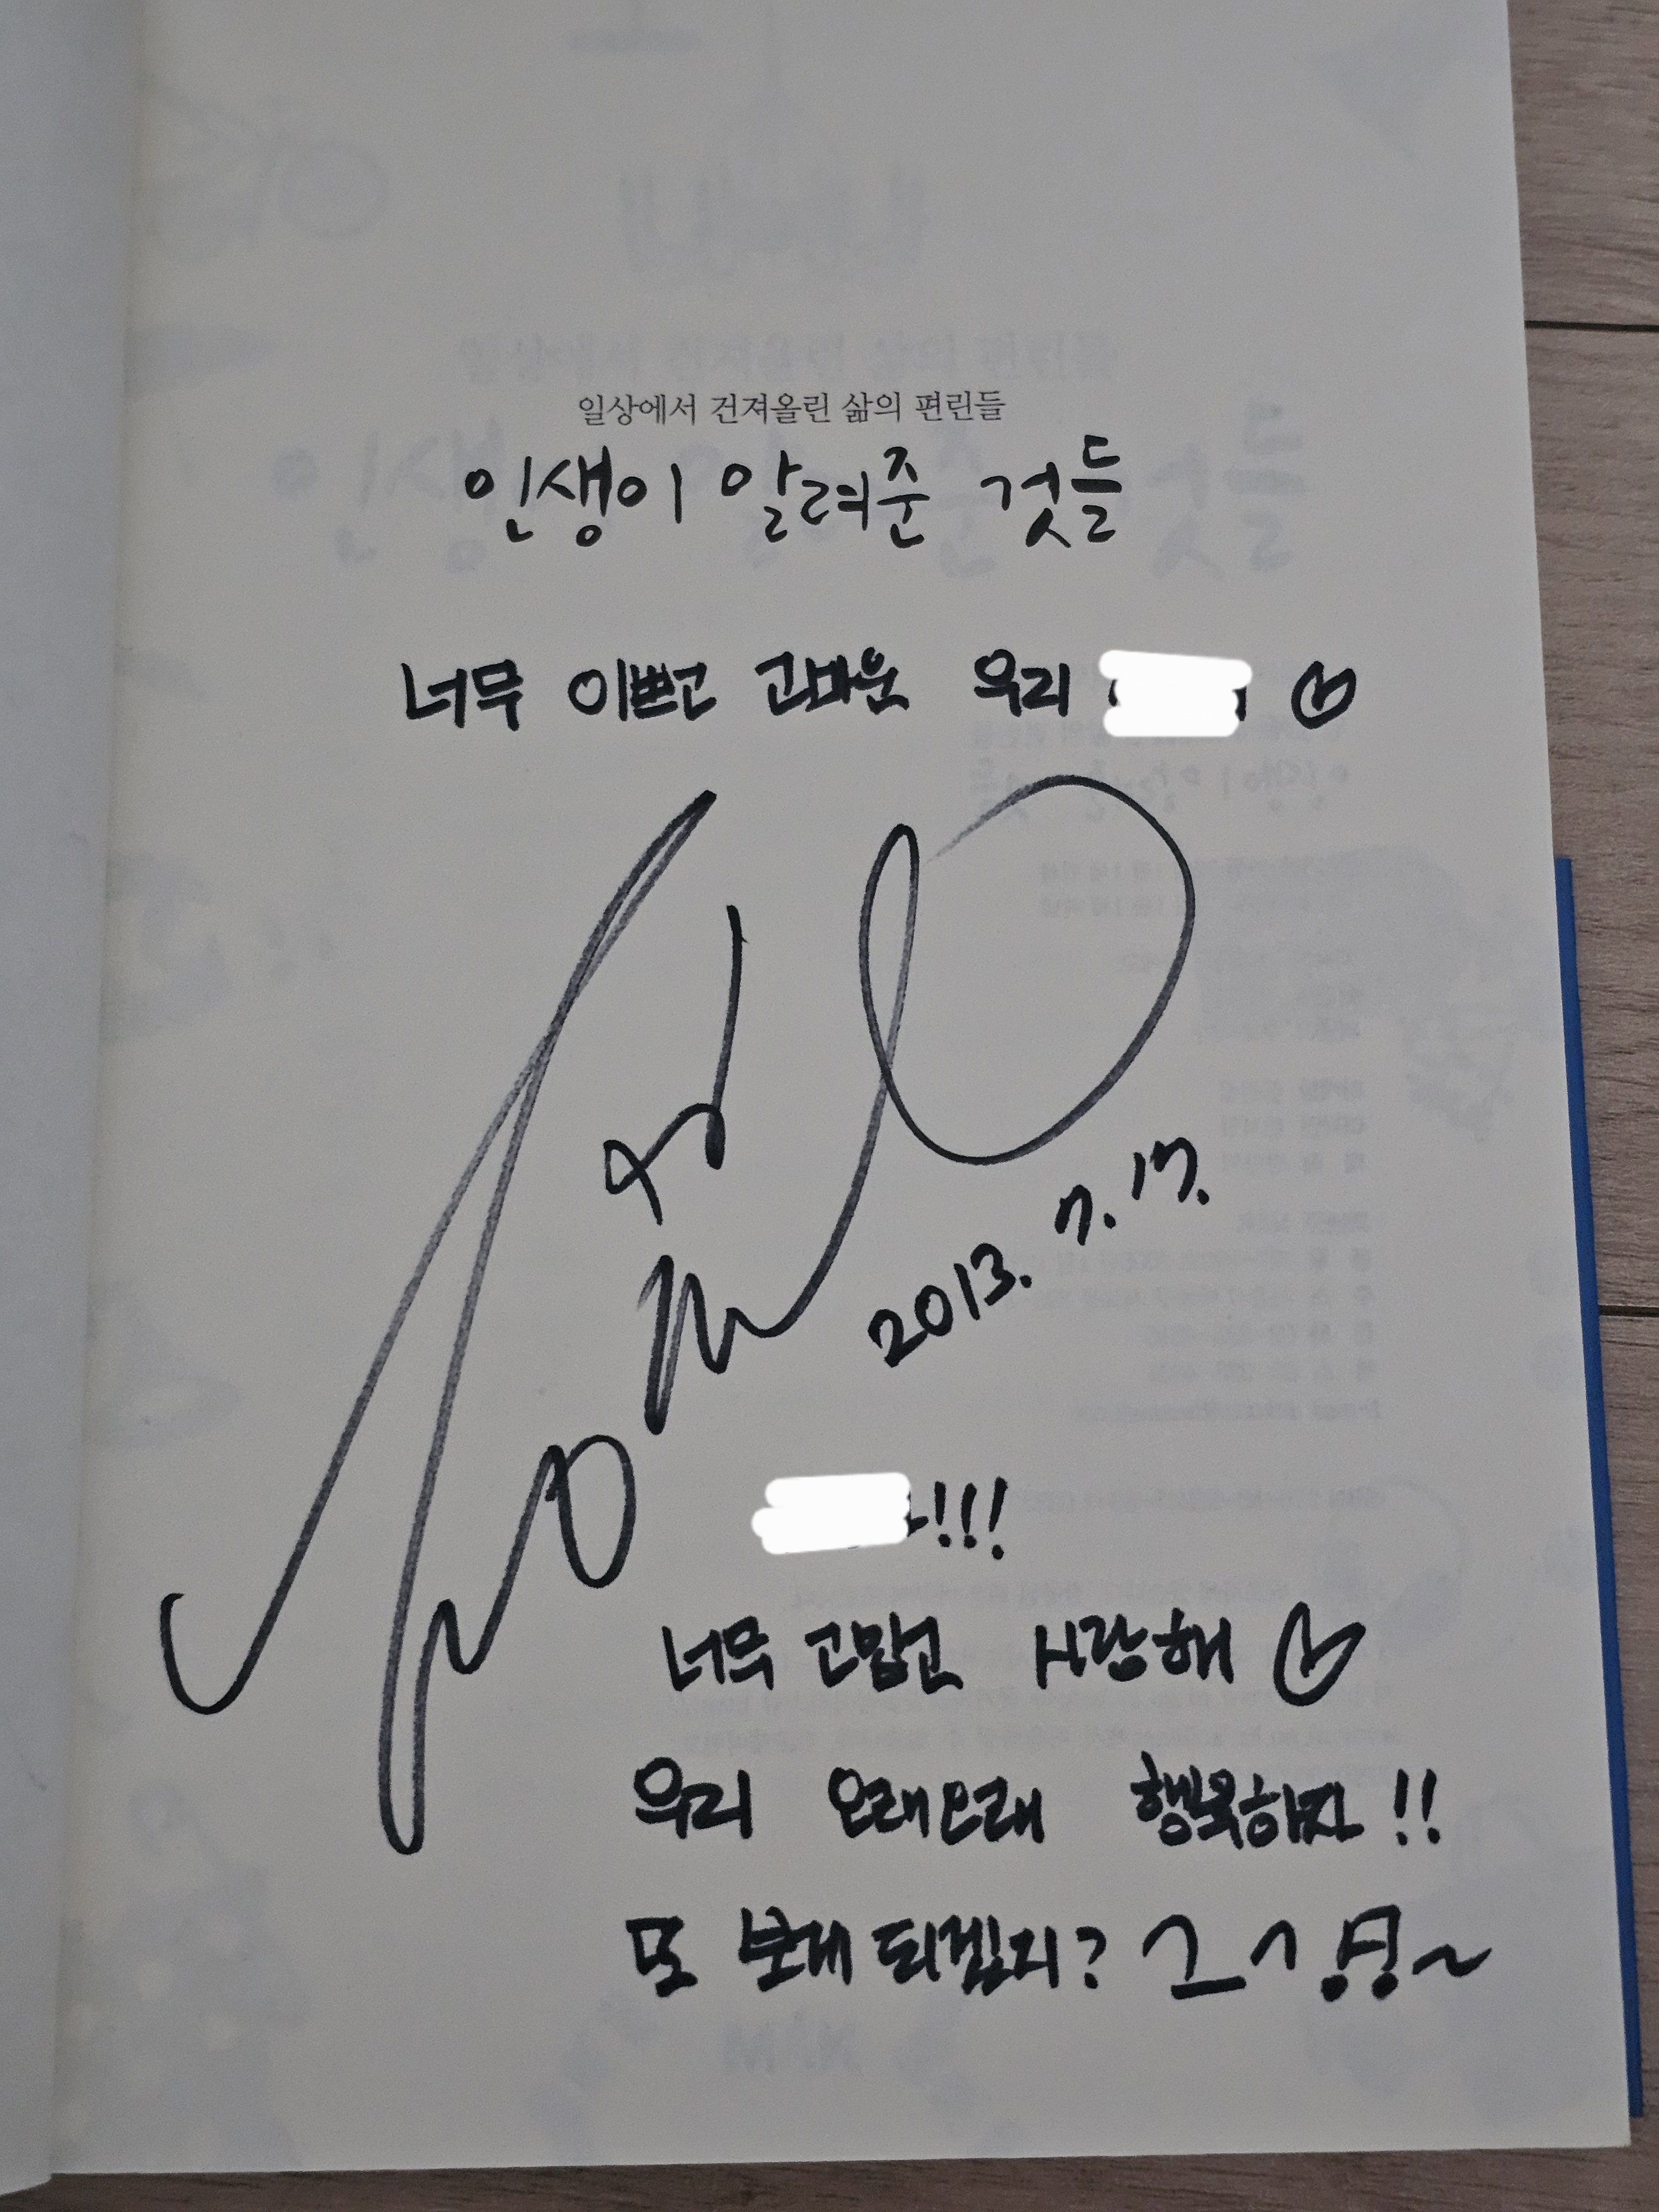 일상에서 건져올린 삶의 편린들
인생이 알려준 것들
너무 이쁘고 고마운 우리 ♡
2013. 7. 17.
!!!
너무 고맙고 사랑해 ♡
우리 오래오래 행복하자!!
또 보게 되겠지? ^_^ 뿅~